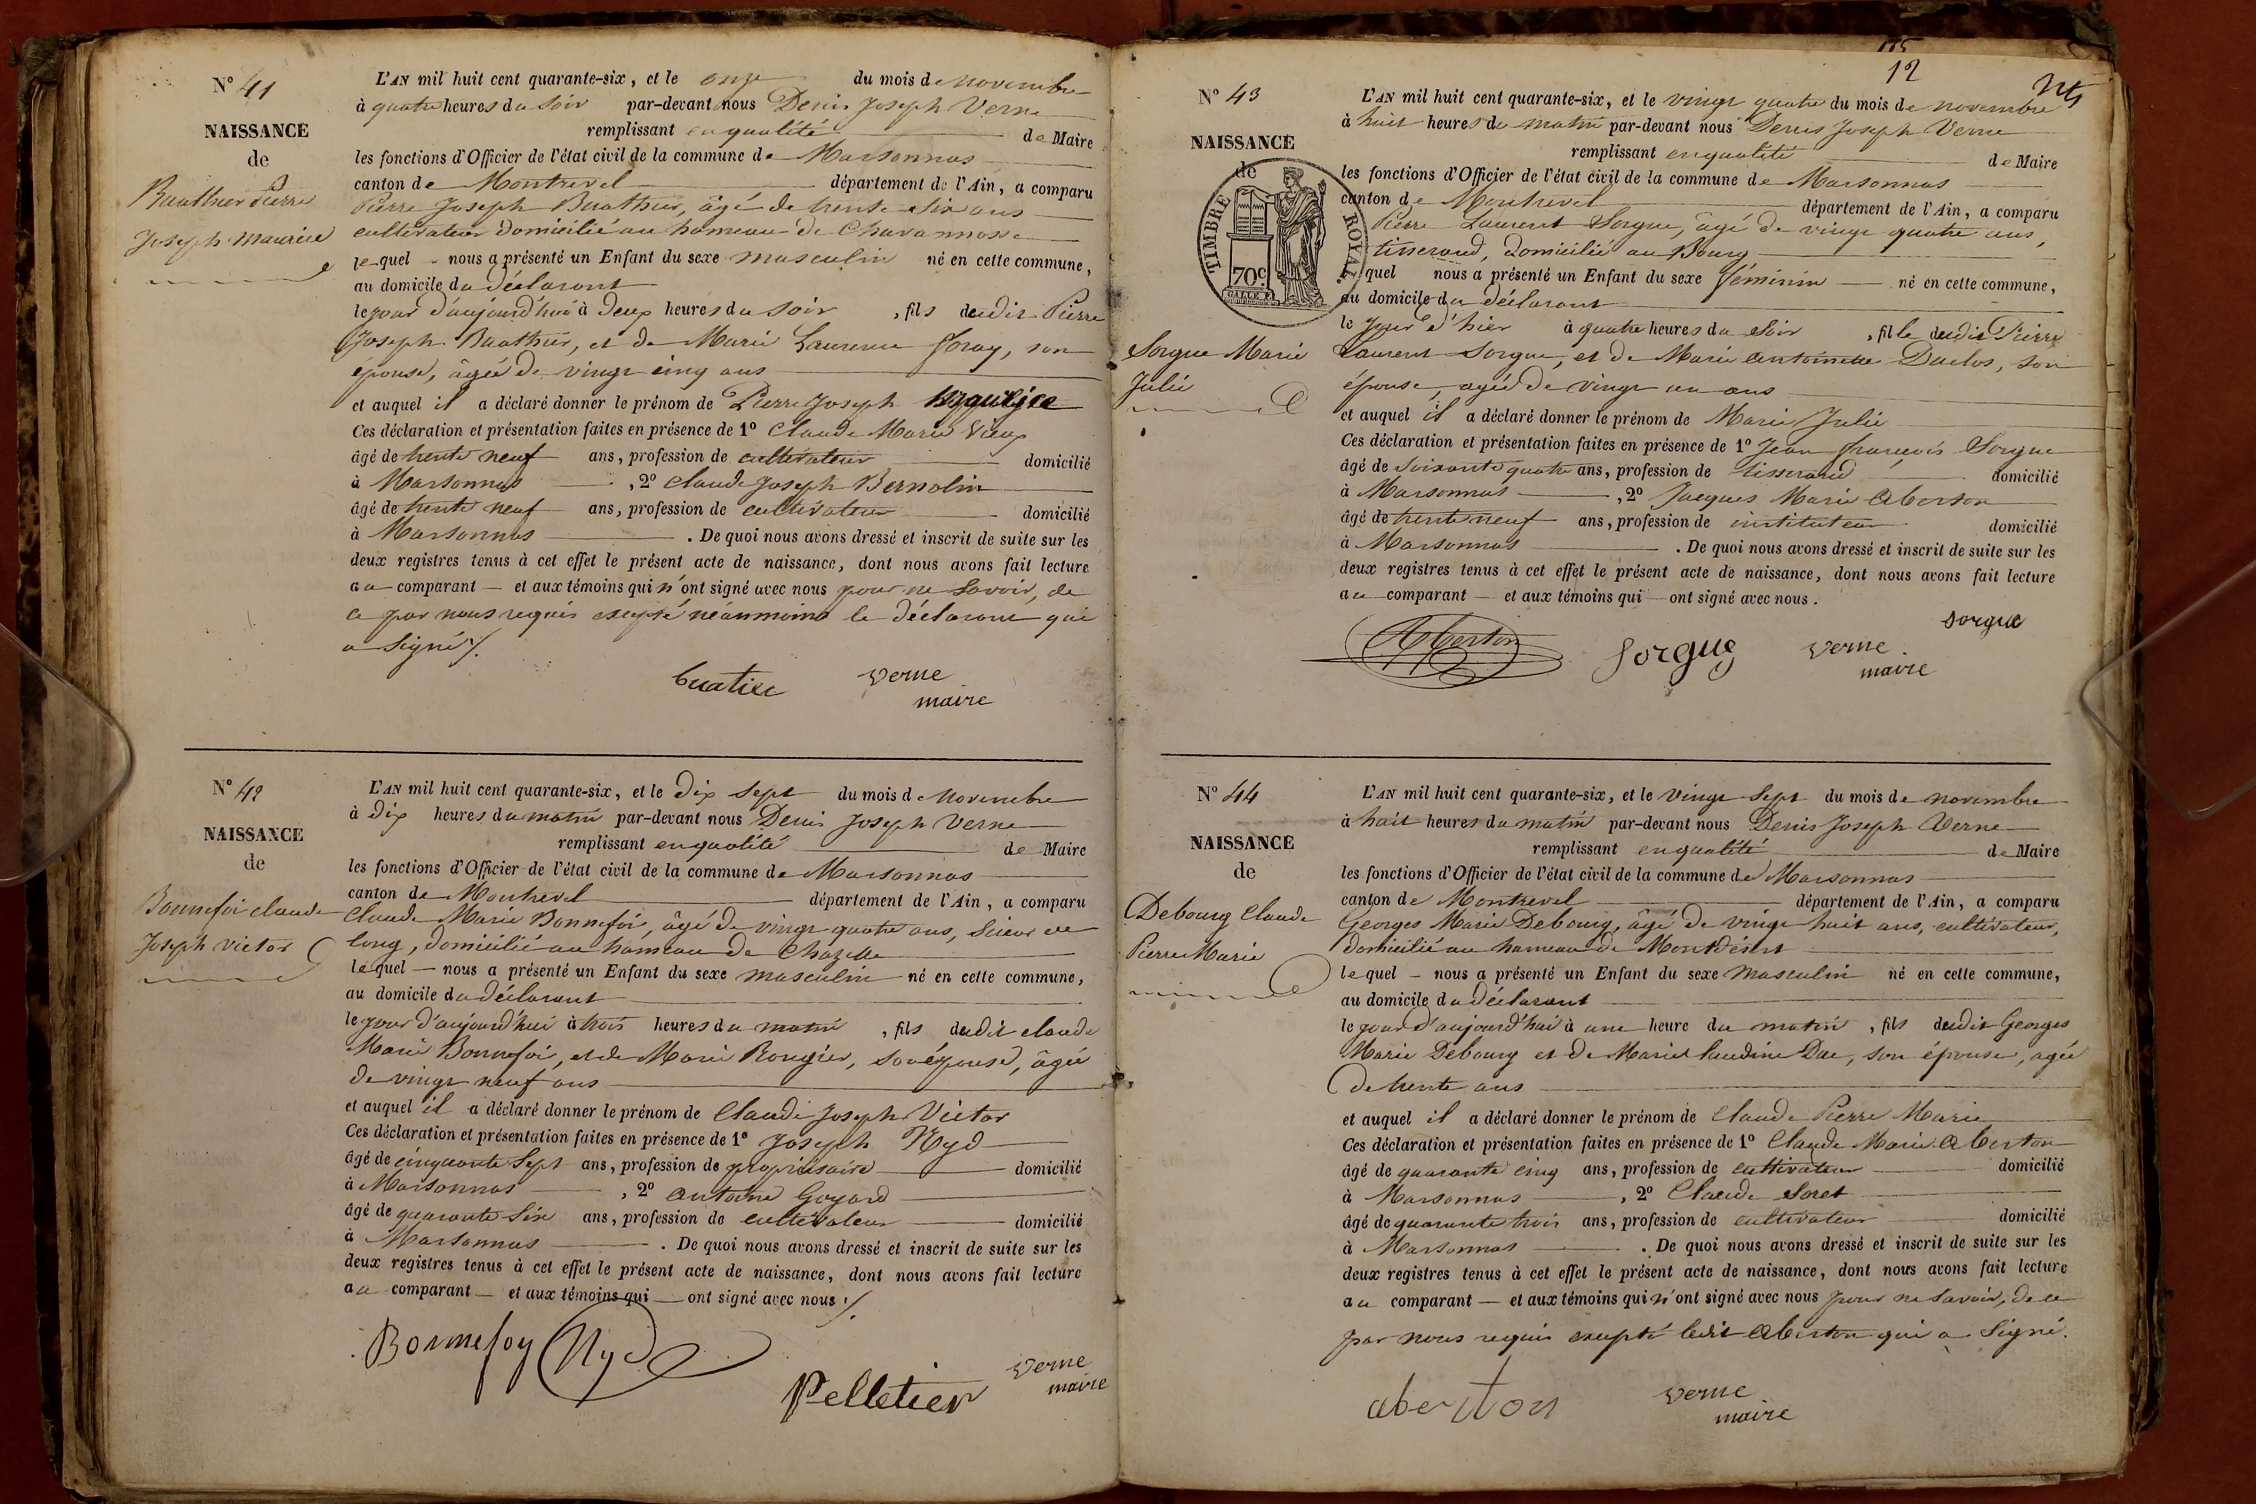 N° 41
NAISSANCE
de
Buathier Pierre
Joseph Maurice
L'AN mil huit cent quarante-six, et le onze du mois de novembre
à quatre heures du soir par-devant nous Denis Joseph Verne
remplissant en qualité de Maire
les fonctions d'Officier de l'état civil de la commune de Marsonnas
canton de Montrevel département de l'Ain, a comparu
Pierre Joseph Buathier, âgé de trente six ans
cultivateur domicilié au hameau de Chavannosse
lequel nous a présenté un Enfant du sexe masculin né en cette commune,
au domicile du déclarant
le jour d'aujourd'hui à deux heures du soir, fils dudit Pierre
Joseph Buathier, et de Marie Laurence Joray, son
épouse, âgée de vingt cinq ans
et auquel il a déclaré donner le prénom de Pierre Joseph Maurice
Ces déclaration et présentation faites en présence de 1° Claude Marie Vieux
âgé de trente neuf ans, profession de cultivateur domicilié
à Marsonnas, 2° Claude Joseph Bernolin
âgé de trente neuf ans, profession de cultivateur domicilié
à Marsonnas. De quoi nous avons dressé et inscrit de suite sur les
deux registres tenus à cet effet le présent acte de naissance, dont nous avons fait lecture
au comparant et aux témoins qui n'ont signé avec nous pour ne savoir, de
ce par nous requis excepté néanmoins le déclarant qui
a signé /.
buatier verne
maire
N° 42
NAISSANCE
de
Bonnefoi Claude
Joseph Victor
L'AN mil huit cent quarante-six, et le dix sept du mois de Novembre
à dix heures du matin par-devant nous Denis Joseph Verne
remplissant en qualité de Maire
les fonctions d'Officier de l'état civil de la commune de Marsonnas
canton de Montrevel département de l'Ain, a comparu
Claude Marie Bonnefoi, âgé de vingt quatre ans, scieur de
long, domicilié au hameau de Chazelle
lequel nous a présenté un Enfant du sexe masculin né en cette commune,
au domicile du déclarant
le jour d'aujourd'hui à trois heures du matin, fils dudit Claude
Marie Bonnefoi, et de Marie Rougier, son épouse, âgée
de vingt neuf ans
et auquel il a déclaré donner le prénom de Claude Joseph Victor
Ces déclaration et présentation faites en présence de 1° Joseph Nyd
âgé de cinquante sept ans, profession de propriétaire domicilié
à Marsonnas, 2° antoine Goyard
âgé de quarante six ans, profession de cultivateur domicilié
à Marsonnas. De quoi nous avons dressé et inscrit de suite sur les
deux registres tenus à cet effet le présent acte de naissance, dont nous avons fait lecture
au comparant et aux témoins qui ont signé avec nous /.
Bonnefoy Nyd
Pelletier verne
maire
115
12
N° 43
NAISSANCE
de
TIMBRE ROYAL
70c
Sorgue Marie
Julie
L'AN mil huit cent quarante-six, et le vingt quatre du mois de novembre
à huit heures du matin par-devant nous Denis Joseph Verne
remplissant en qualité de Maire
les fonctions d'Officier de l'état civil de la commune de Marsonnas
canton de Montrevel département de l'Ain, a comparu
Pierre Laurent Sorgue, âgé de vingt quatre ans,
tisserand, domicilié au Bourg
lequel nous a présenté un Enfant du sexe féminin né en cette commune,
au domicile du déclarant
le jour d'hier à quatre heures du soir, fille dudit Pierre
Laurent Sorgue, et de Marie antoinette Duclos, son
épouse, agée de vingt un ans
et auquel il a déclaré donner le prénom de Marie Julie
Ces déclaration et présentation faites en présence de 1° Jean françois Sorgue
âgé de soixante quatre ans, profession de tisserand domicilié
à Marsonnas, 2° Jacques Marie Aberton
âgé de trente neuf ans, profession de instituteur domicilié
à Marsonnas. De quoi nous avons dressé et inscrit de suite sur les
deux registres tenus à cet effet le présent acte de naissance, dont nous avons fait lecture
au comparant et aux témoins qui ont signé avec nous.
sorgue
Aberton sorgue verne
maire
N° 44
NAISSANCE
de
Debourg Claude
Pierre Marie
L'AN mil huit cent quarante-six, et le vingt sept du mois de novembre
à huit heures du matin par-devant nous Denis Joseph Verne
remplissant en qualité de Maire
les fonctions d'Officier de l'état civil de la commune de Marsonnas
canton de Montrevel département de l'Ain, a comparu
Georges Marie Debourg, âgé de vingt huit ans, cultivateur,
domicilié au hameau de Montdésert
lequel nous a présenté un Enfant du sexe masculin né en cette commune,
au domicile du déclarant
le jour d'aujourd'hui à une heure du matin, fils dudit Georges
Marie Debourg et de Marie Claudine Duc, son épouse, agée
de trente ans
et auquel il a déclaré donner le prénom de Claude Pierre Marie
Ces déclaration et présentation faites en présence de 1° Claude Marie Aberton
âgé de quarante cinq ans, profession de cultivateur domicilié
à Marsonnas, 2° Claude Soret
âgé de quarante trois ans, profession de cultivateur domicilié
à Marsonnas. De quoi nous avons dressé et inscrit de suite sur les
deux registres tenus à cet effet le présent acte de naissance, dont nous avons fait lecture
au comparant et aux témoins qui n'ont signé avec nous pour ne savoir, de ce
par nous requis excepté ledit Aberton qui a signé.
aberton verne
maire